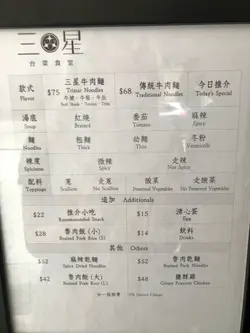 三星
台菜食堂
款式 $75 三星牛肉麵 $68 傳統牛肉麵 今日推介
Flavor Trinus Noodles Traditional Noodles Today's Special
牛腱、牛筋、牛肚
湯底 紅燒 番茄 麻辣
Soup Braised Tomato Spicy
麵 粗麵 幼麵 冬粉
Noodles Thick Thin Vermicelli
辣度 微辣 走辣
Spiciness Spicy Not Spicy
配料 蔥 走蔥 酸菜 走酸菜
Toppings Scallion No Scallion Preserved Vegetables No Preserved Vegetables
追加 Additionals
$22 推介小吃 $15 溏心蛋
Recommended Snack Egg
$28 魯肉飯(小) $14 飲料
Braised Pork Rice (S) Drinks
其他 Others
$52 麻辣乾麵 $52 魯肉乾麵
Spicy Dried Noodles Braised Pork Noodles
$42 魯肉飯(大) $48 鹽酥雞
Braised Pork Rice (L) Crispy Popcorn Chicken
加一服務費 10% Service Charge